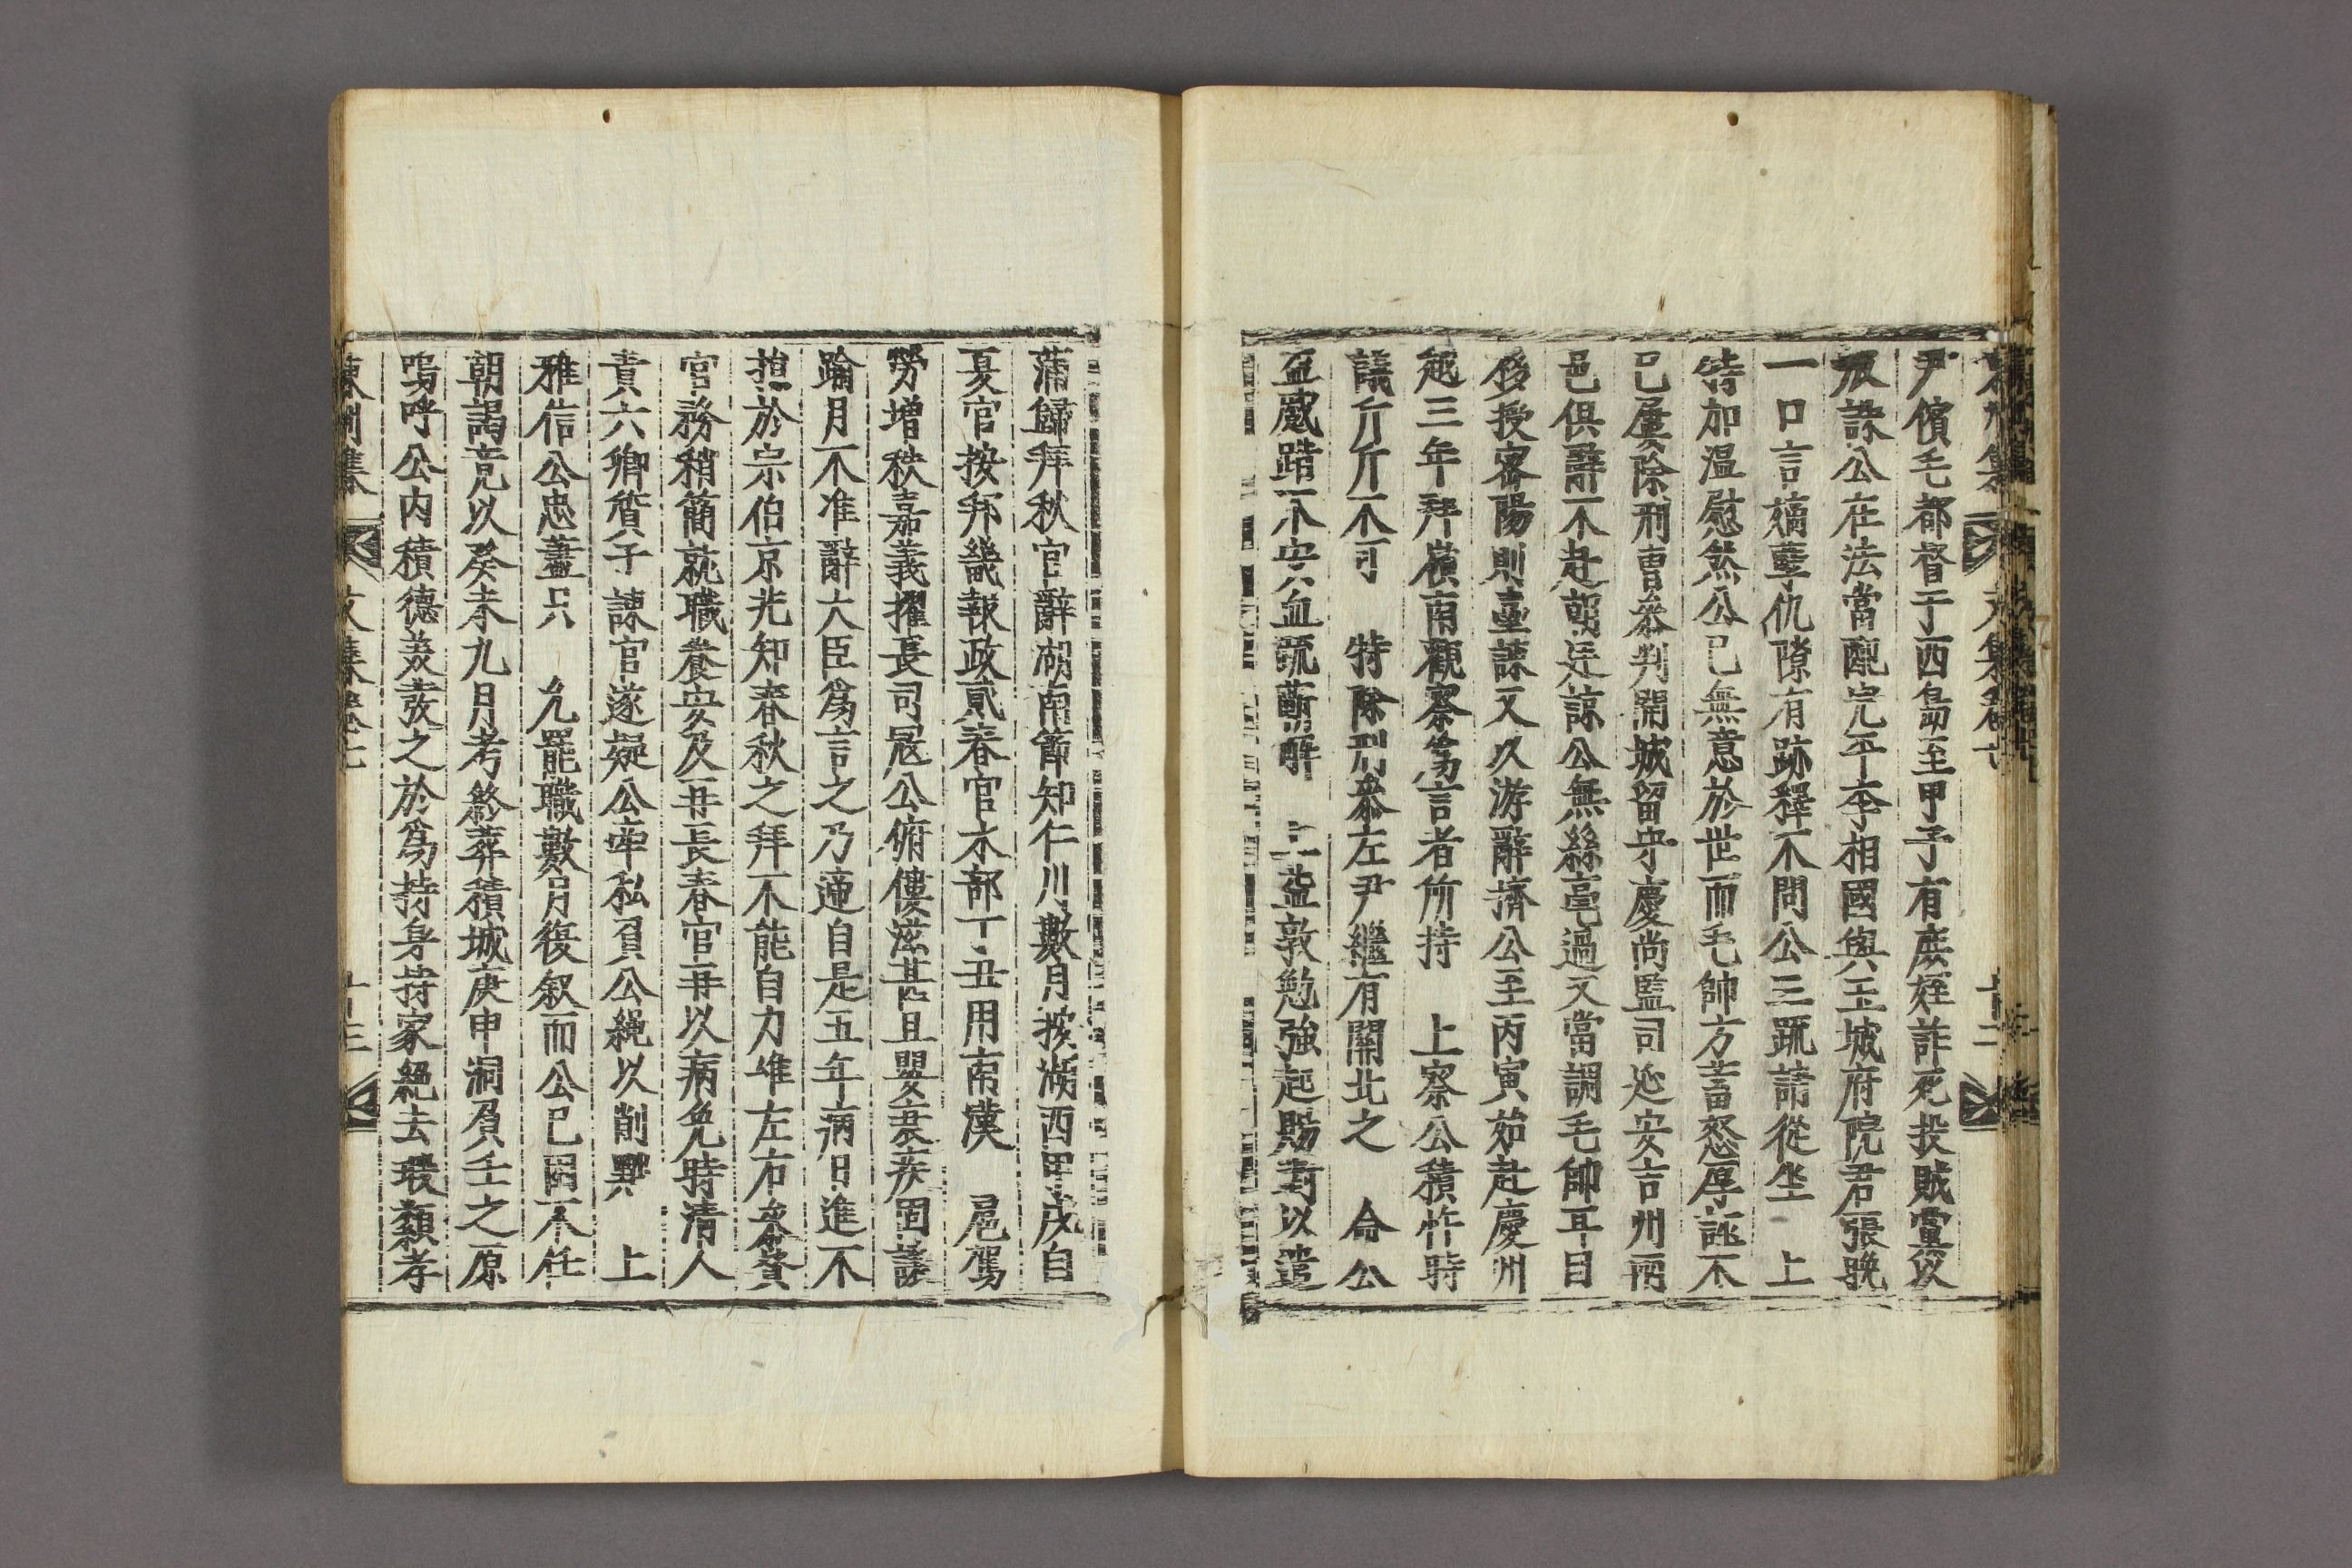 尹儐毛都督于西島至甲子有庶姪詐死投賊黨從
叛誅公在法當配完平李相國與玉城府院君張晩
一口言嫡孽仇隙有跡釋不問公三疏請從坐 上
特加温慰然公已無意於世而毛帥方蓄怒厚誣不
已屢除刑曹參判開城留守慶尚監司延安吉州兩
邑俱辭不赴朝廷諒公無絲毫過又當調毛帥耳目
移授密陽則臺諫又以游辭擠公至丙寅始赴慶州
越三年拜嶺南觀察爲言者所持 上察公積忤時
議斤斤不可 特除刑參左尹繼有關北之 命公
益蹙踖不安血疏蘄解 上益敦勉強起賜對以遣
蒲歸拜秋官辭湖南節知仁川數月按湖西甲戌自
夏官按邦畿報政貳春官水部丁丑用南漢 扈駕
勞增秩嘉義擢長司寇公俯僂滋甚且嬰衰疾固讓
踰月不准辭大臣爲言之乃適自是五年病日進不
揔於宗伯京兆知春秋之拜不能自力唯左右參贊
官務稍簡就職養安及再長春官再以病免時清人
責六卿質子諫官遂疑公牢私負公繩以削職 上
雅信公忠藎只 允罷職數月復叙而公已固不任
朝謁竟以癸未九月考終葬積城庚申洞負壬之原
嗚呼公内積德義發之於爲持身持家絕去瑕纇孝
東洲集 文集卷七 十三